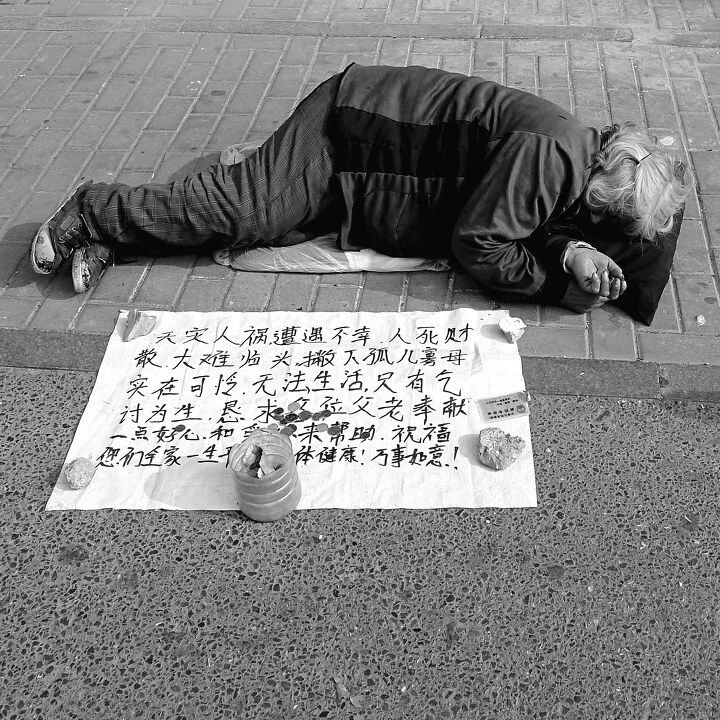 天灾人祸,遭遇不幸.人死财
散.大难临头.撇下孤儿寡母
实在可怜.无法生活,只有乞
讨为生.恳求各位父老奉献
一点好心.和 来帮助.祝福
您们全家一生 体健康!万事如意.!